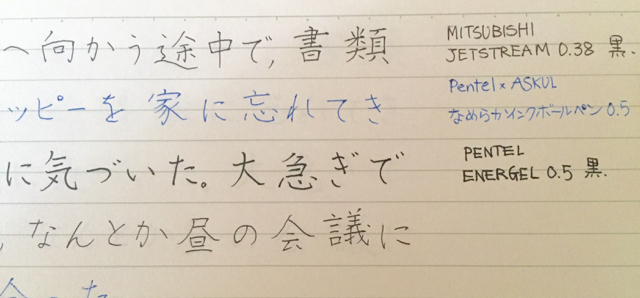 へ向かう途中で,書類
MITSUBISHI
JETSTREAM 0.38 黒.
ッピーを家に忘れてき
Pentel x ASKUL
なめらかインクボールペン 0.5
に気づいた。大急ぎで
PENTEL
ENERGEL 0.5 黒.
,なんとか昼の会議に
合った